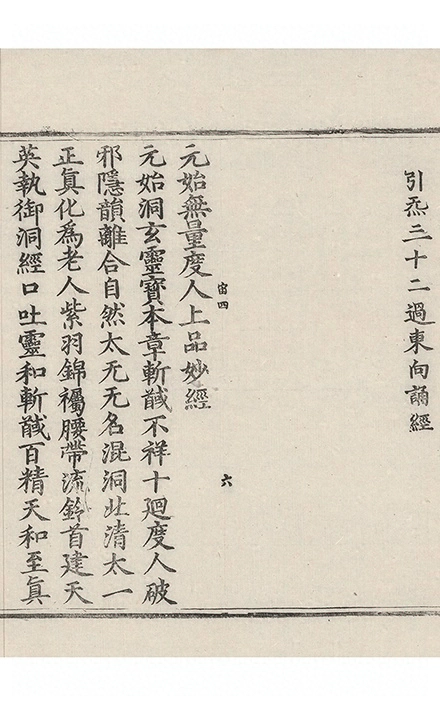 引炁三十二過東向誦經
宙四
六
元始無量度人上品妙經
元始洞玄靈寶本章斬馘不祥十迴度人破
邪隱韻離合自然太无无名混洞上清太一
正真化為老人紫羽錦襡腰帶流鈴首建天
英執御洞經口吐靈和斬馘百精天和至真